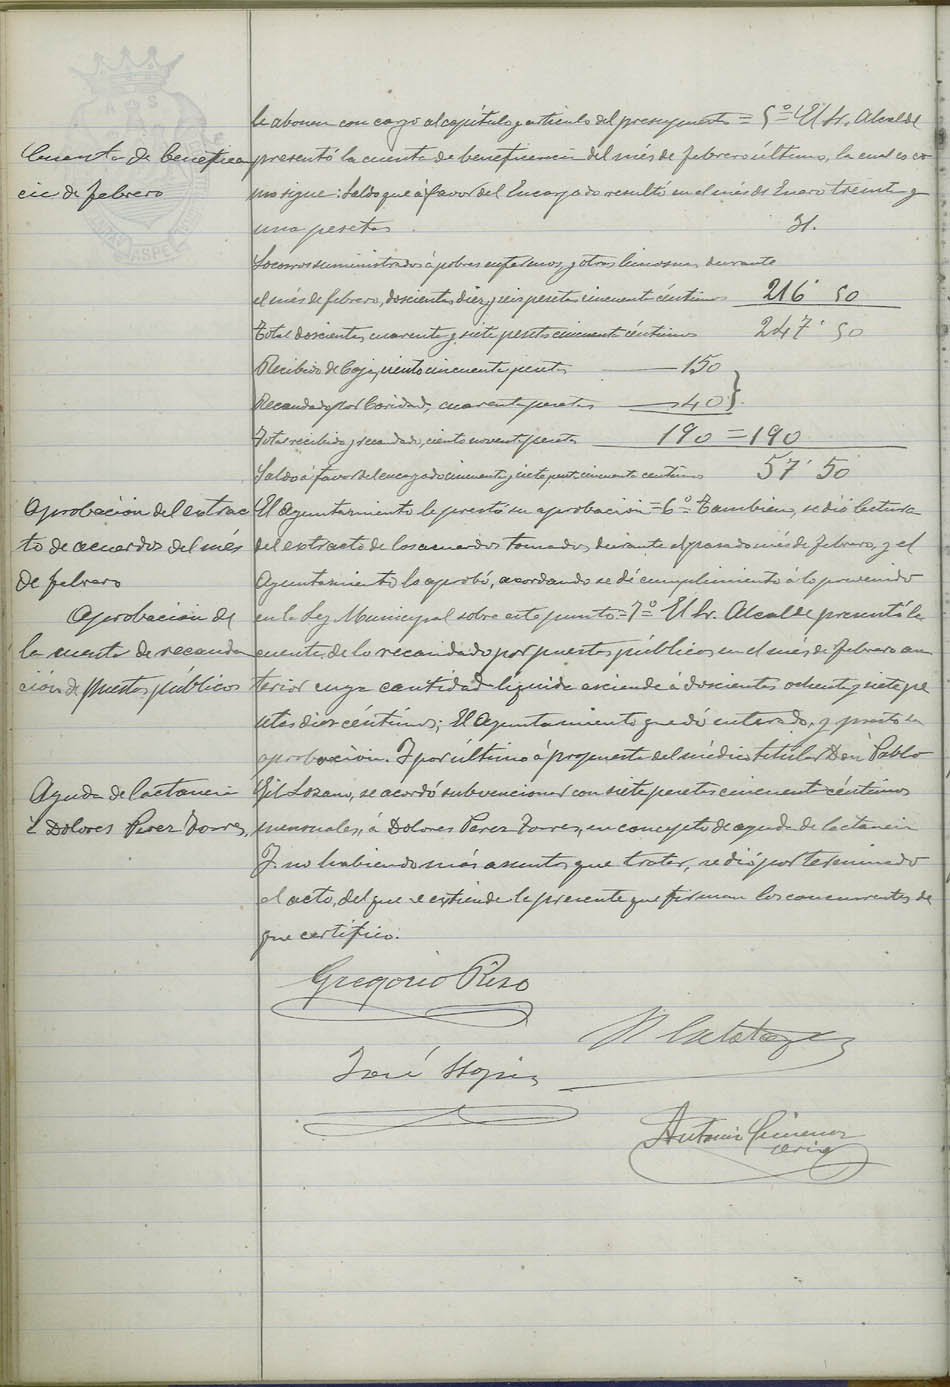 se abonen con cargo al capítulo y artículo del presupuesto = 5º = El Sr. Alcalde
Cuenta de beneficen
cia de febrero
presentó la cuenta de beneficencia del més de febrero último, la cual es co
mo sigue: Saldo que á favor del Encargado resultó en el més de Enero treinta y
una pesetas 31.
Socorros suministrados á pobres enfermos y otras limosnas durante
el més de febrero, doscientas diez y seis pesetas cincuenta céntimos 216' 50
Total doscientas cuarenta y siete pesetas cincuenta céntimos 247' 50
Recibido de Caja, ciento cincuenta pesetas 150
Recaudado por Caridad, cuarenta pesetas 40
Total recibido y recaudado, ciento noventa pesetas 190 = 190
Saldo á favor del encargado cincuenta y siete pest. cincuenta centimos 57' 50
Aprobación del extrac
to de acuerdos del més
de febrero
El Ayuntamiento le prestó su aprobación = 6º = Tambien, se dió lectura
del extracto de los acuerdos tomados durante el pasado més de febrero, y el
Ayuntamiento lo aprobó, acordando se dé cumplimiento á lo prevenido
Aprobación de
la cuenta de recauda
ción de puestos públicos
en la Ley Municipal sobre este punto = 7º = El Sr. Alcalde presentó la
cuenta de lo recaudado por puestos públicos en el més de febrero an
terior cuya cantidad líquida asciende á doscientas ochenta y siete pe
setas diez céntimos; El Ayuntamiento quedó enterado, y prestó su
aprobación. Y por último á propuesta del médico titular Don Pablo
Ayuda de lactancia
á Dolores Perez Torres,
Gil Lozano, se acordó subvencionar con siete pesetas cincuenta céntimos
mensuales, á Dolores Perez Torres, en concepto de ayuda de lactancia
Y no habiendo más asuntos que tratar, se dió por terminado
el acto, del que se extiende la presente que firman los concurrentes de
que certifico.
Gregorio Rizo
José
Antonio Gimenez